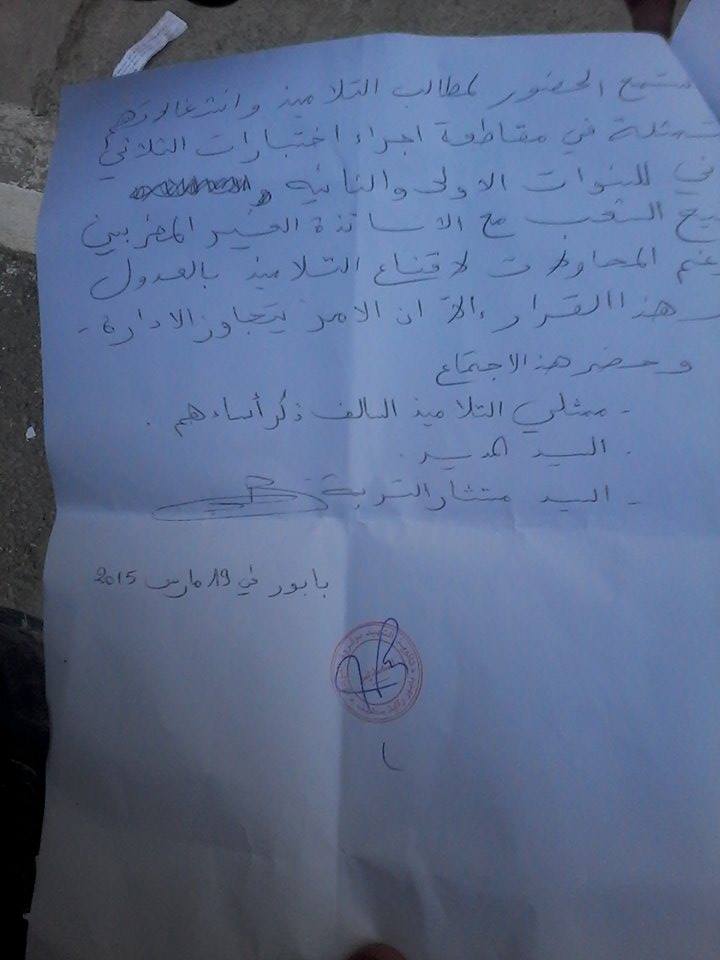 ستمع الحضور لمطالب التلاميذ وانشغالاتهم
تمثلة في مقاطعة اجراء اختبارات الثلاثي
ني للسنوات الاولى والثانية و
الشعب مع الاساتذة الغير المضربين
رغم المحاولات لاقناع التلاميذ بالعدول
هذا القرار، إلا ان الامر يتجاوز الادارة -
وحضر هذا الاجتماع
- ممثلي التلاميذ السالف ذكر أسماءهم .
- السيد المدير .
- السيد مستشار التربية
بابور في 19 مارس 2015